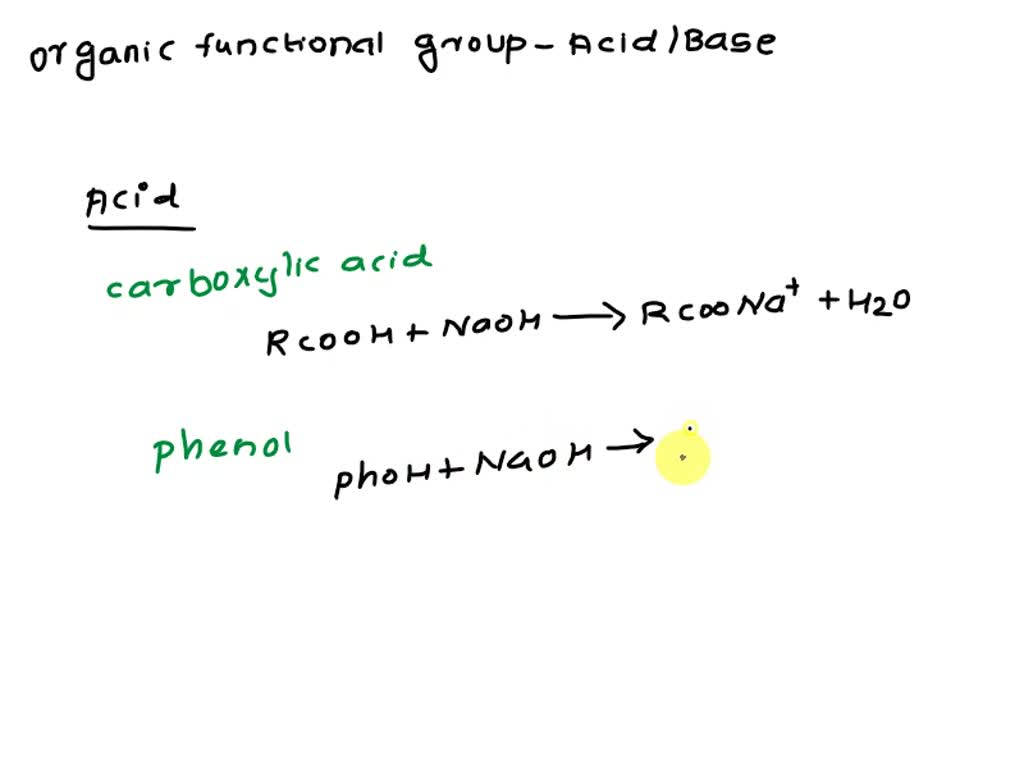 organic functional group - Acid/Base
Acid
carboxylic acid
RCOOH + NaOH → RCOONa⁺ + H2O
phenol
phOH + NaOH →